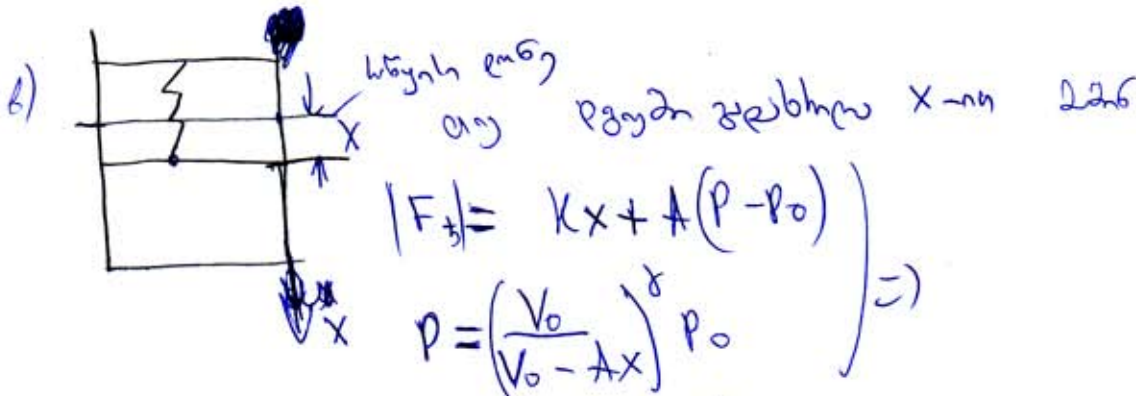 ბ)
საწყისი დონე
X
თუ დგუში გადახრილია X-ით მაშინ
|Fჯ| = Kx + A(P - P₀)
P = (V₀ / (V₀ - Ax))^γ P₀ ) =>
X